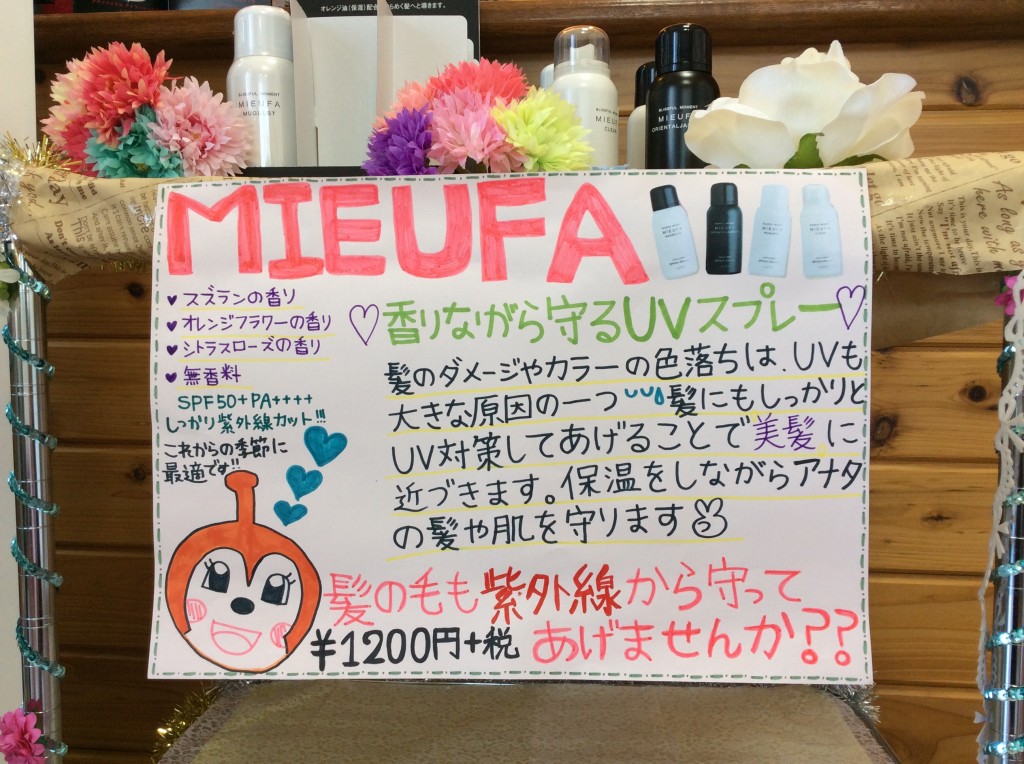 オレンジ油(保湿)配合
めく髪へと導きます。
BLISSFUL MOMENT
MIEUFA
MUGUET
BLISSFUL MOMENT
CLEAR
BLISSFUL MOMENT
MIEUFA
MIEUFA
♥ スズランの香り
♥ オレンジフラワーの香り
♥ シトラスローズの香り
♥ 無香料
SPF50+PA++++
しっかり紫外線カット!!!
これからの季節に
最適です!!
♡香りながら守るUVスプレー♡
髪のダメージやカラーの色落ちは、UVも
大きな原因の一つ 髪にもしっかりと
UV対策してあげることで美髪に
近づきます。保温をしながらアナタ
の髪や肌を守ります
髪の毛も紫外線から守って
あげませんか??
¥1200円+税
As long as
here with m